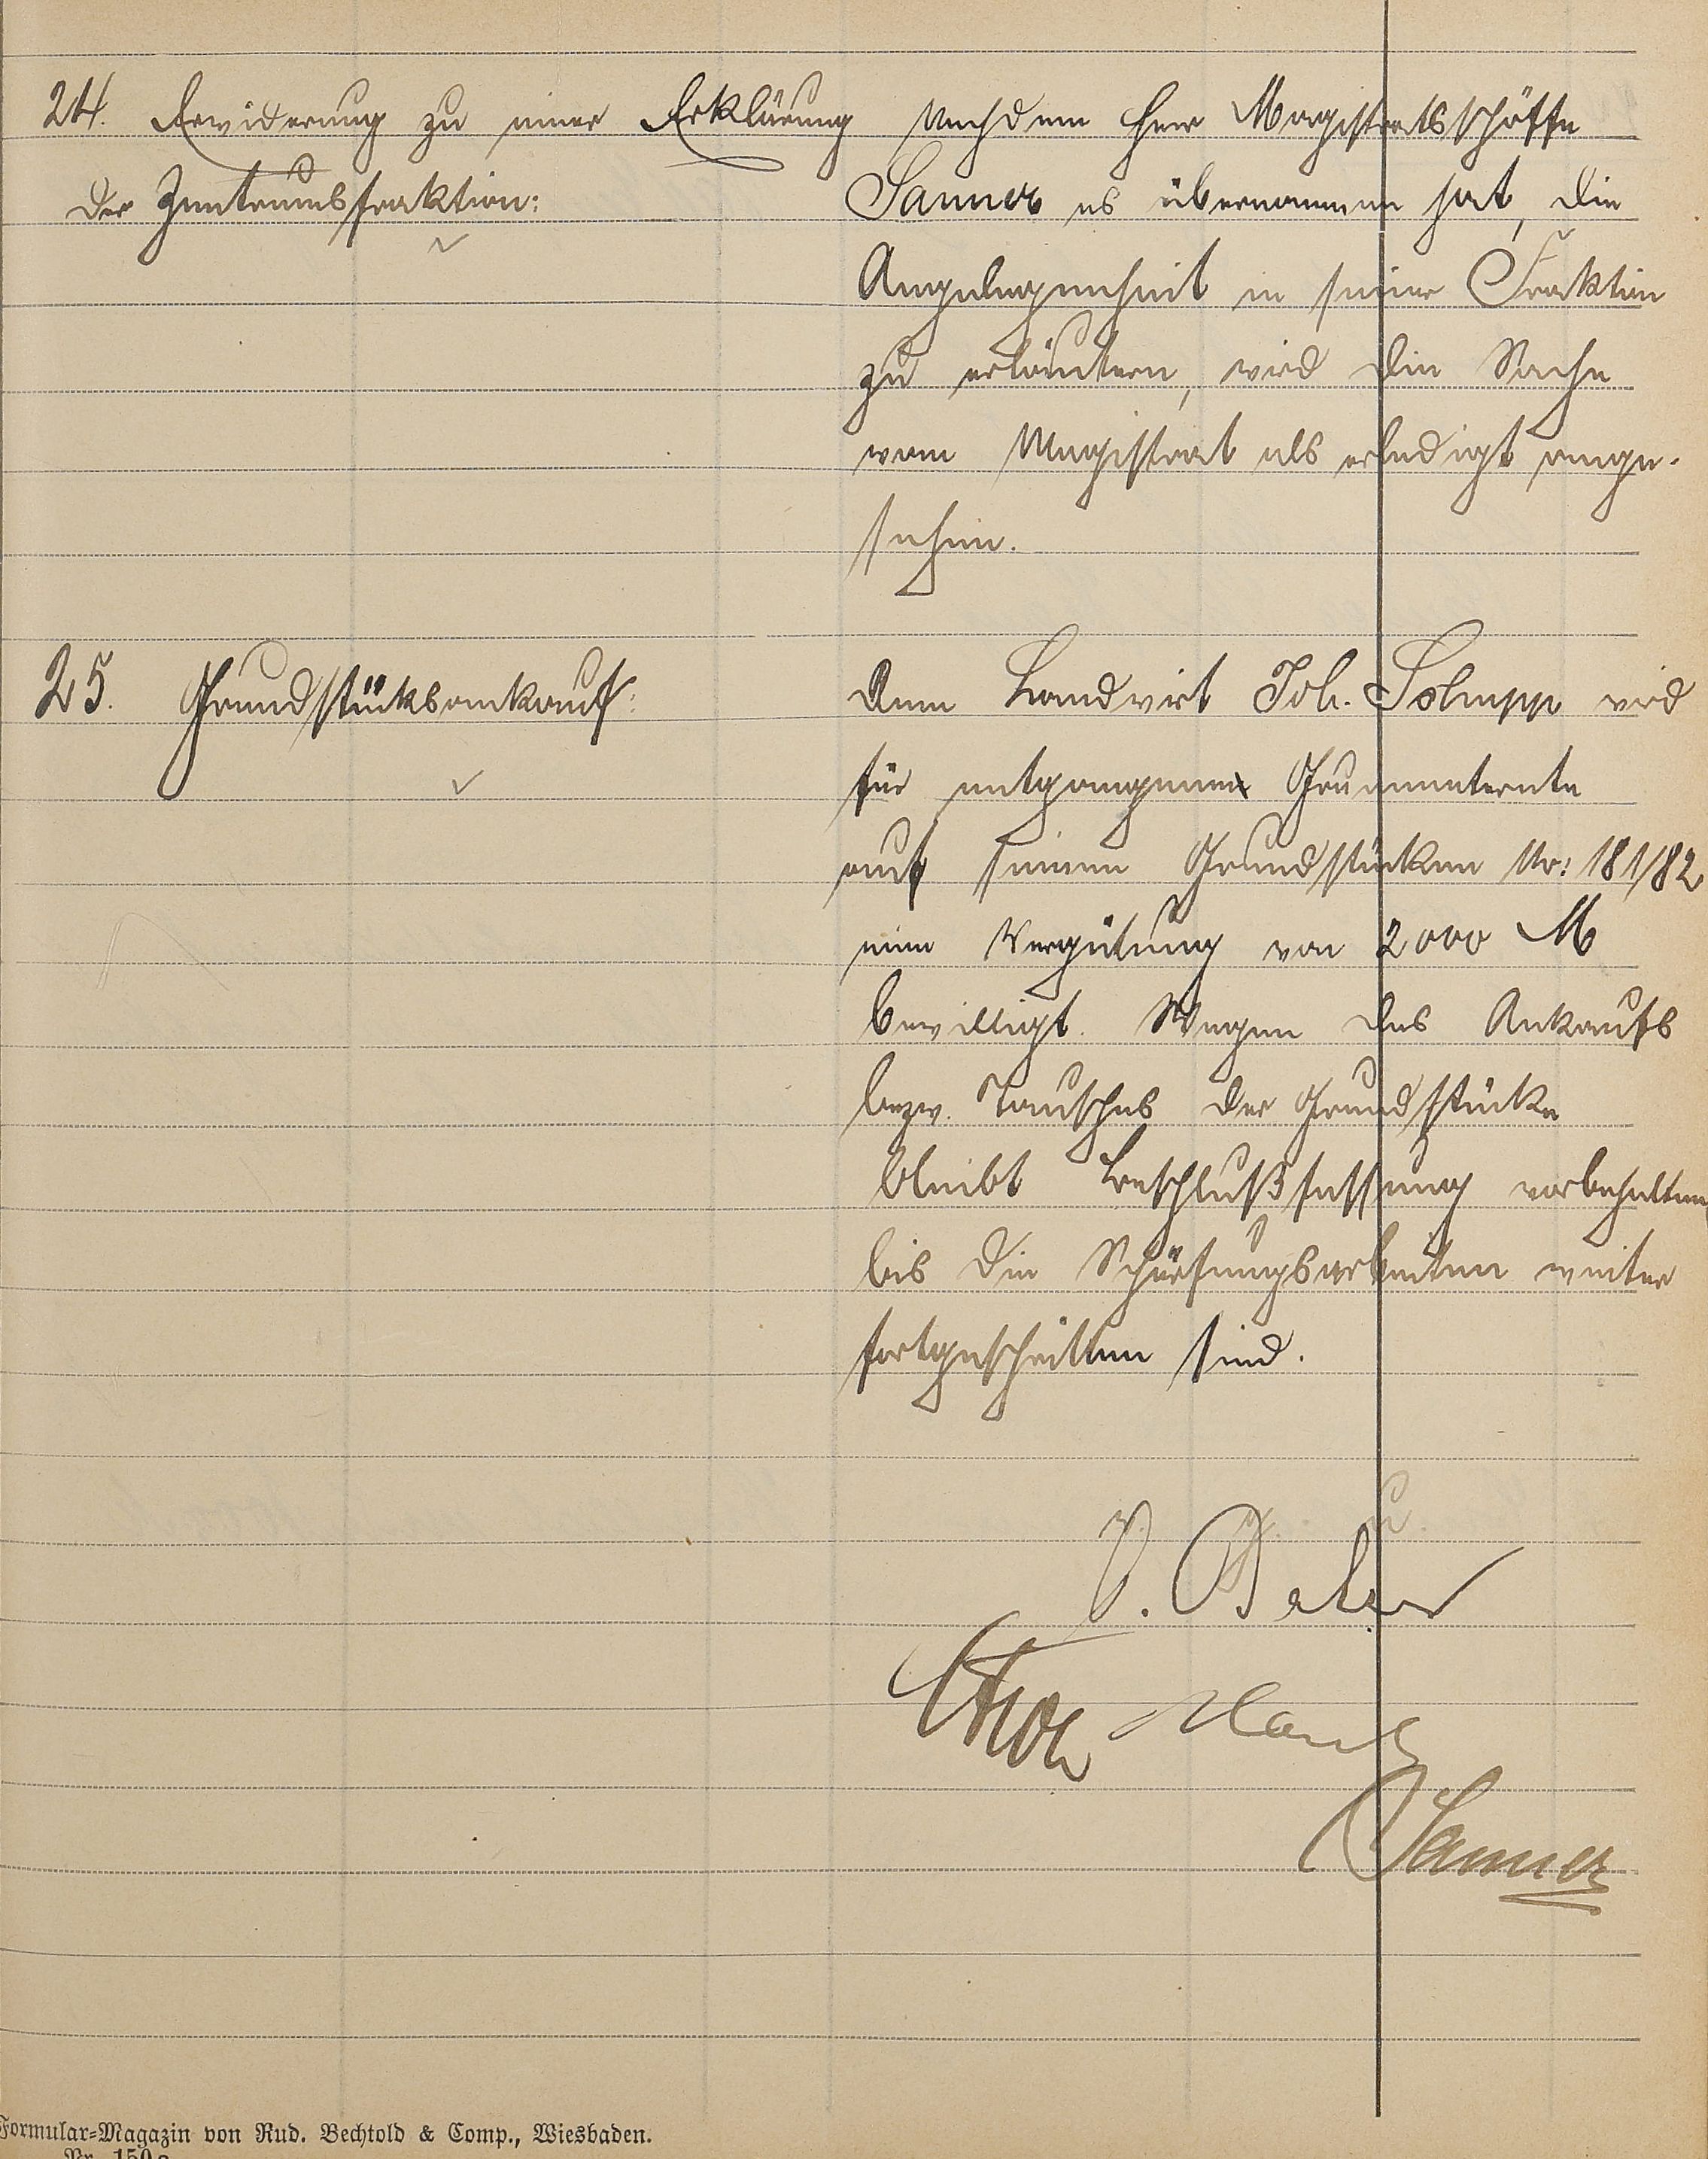 24. Erwiderung zu einer Erklärung
der Zentrumsfraktion:
Nachdem Herr Magistratsschöffe
Sanner es übernommen hat, die
Angelegenheit in seiner Fraktion
zu erläutern, wird die Sache
vom Magistrat als erledigt ange-
sehen.
25. Grundstücksankauf:
Dem Landwirt Joh. Schupp wird
für entgangene Grummeternte
auf seinen Grundstücken Nr: 181/82
eine Vergütung von 2000 M
bewilligt. Wegen des Ankaufs
bezw. Tausches der Grundstücke
bleibt Beschlußfassung vorbehalten,
bis die Schürfungsarbeiten weiter
fortgeschritten sind.
Sanner
Formular-Magazin von Rud. Bechtold & Comp., Wiesbaden.
Nr. 150a